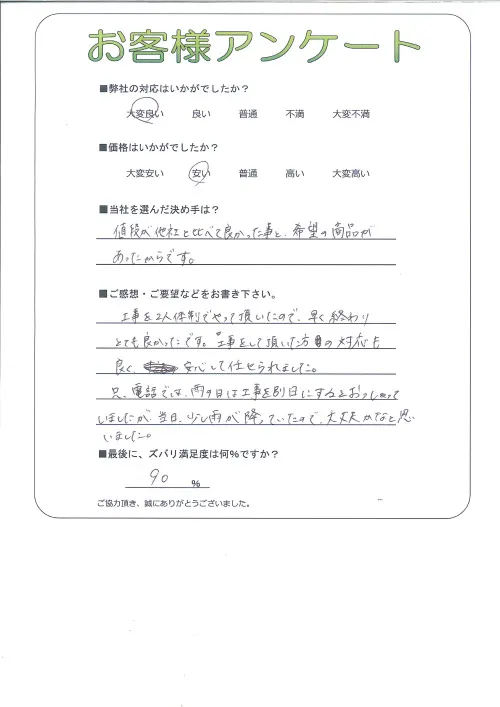 お客様アンケート
■弊社の対応はいかがでしたか？
大変良い 良い 普通 不満 大変不満
■価格はいかがでしたか？
大変安い 安い 普通 高い 大変高い
■当社を選んだ決め手は？
値段が他社と比べて良かった事と、希望の商品が
あったからです。
■ご感想・ご要望などをお書き下さい。
工事を2人体制でやって頂いたので、早く終わり
とても良かったです。工事をして頂いた方の対応も
良く、安心して任せられました。
又、電話では、雨の日は工事を別日にするとおっしゃって
いましたが、当日、少し雨が降っていたので、大丈夫かなと思
いました。
■最後に、ズバリ満足度は何%ですか？
90 %
ご協力頂き、誠にありがとうございました。